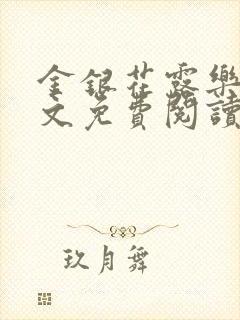 金银花露樂
文免費閱讀
玖月舞